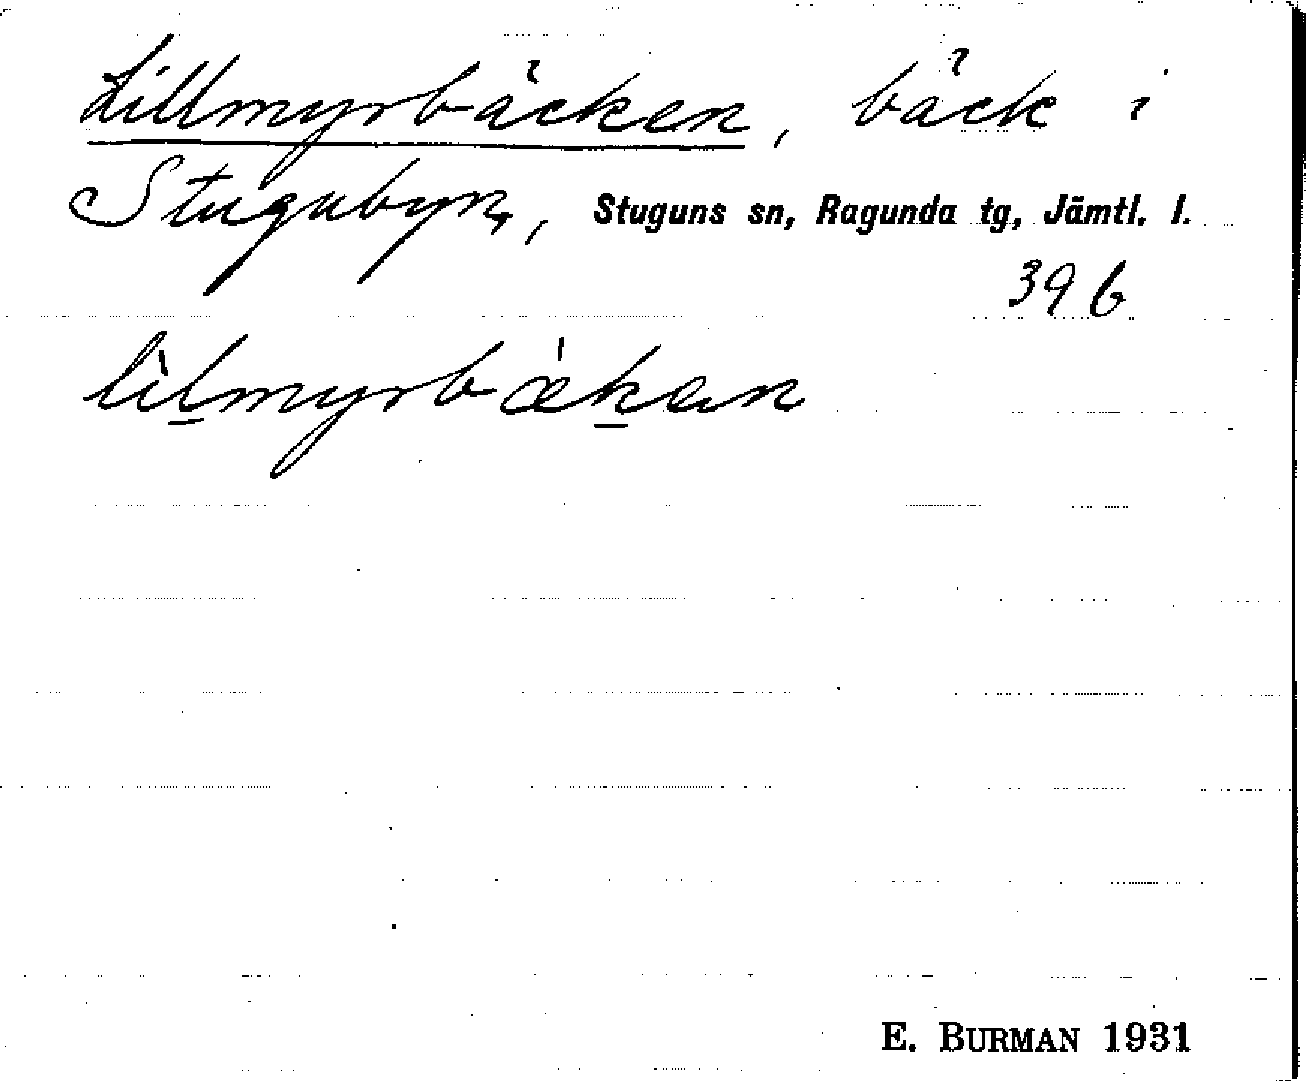 Lillmyrbäcken, bäck i
Stugubyn, Stuguns sn, Ragunda tg, Jämtl. l.
396
lìlmyrbǽkan
E. BURMAN 1931